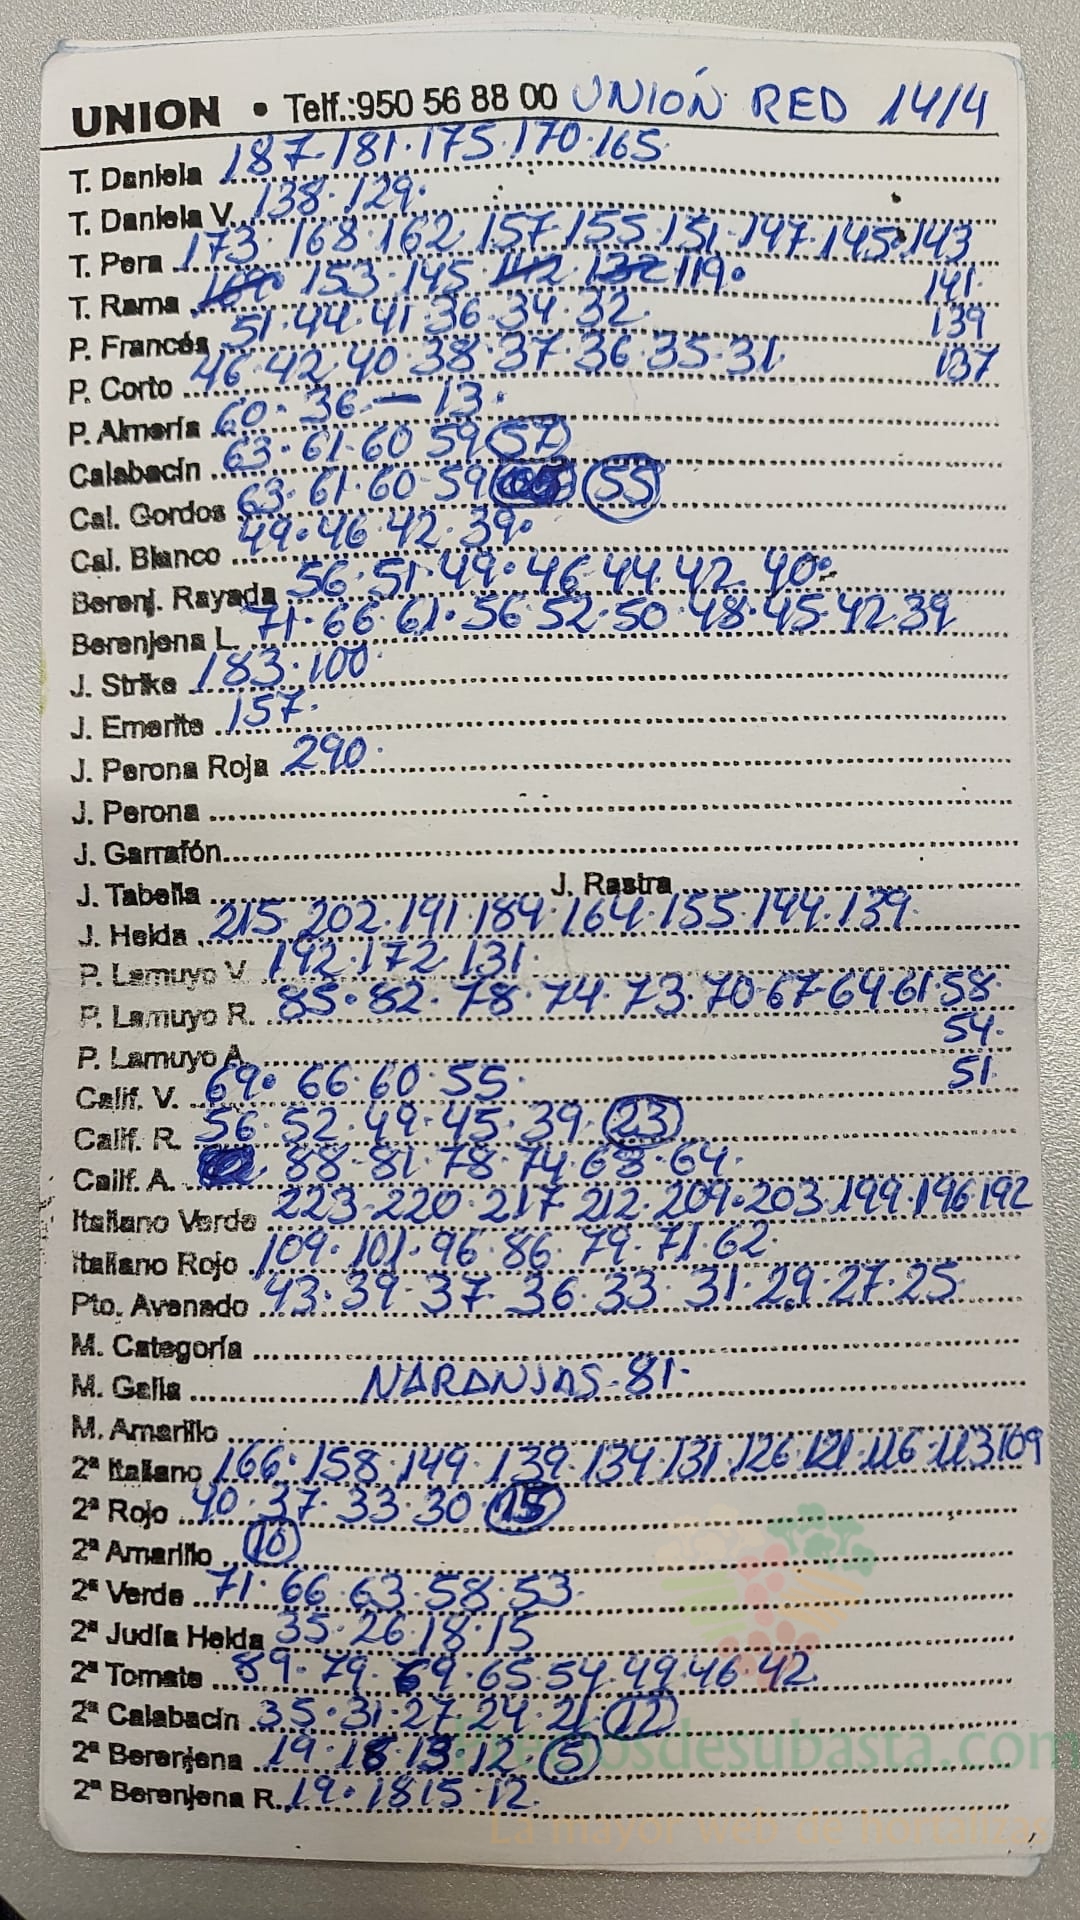 UNION • Telf.:950 56 88 00 UNIÓN RED 14/4
T. Daniela 187·181·175·170·165
T. Daniela V. 138·129·
T. Pera 173·168·162·157·155·151·147·145·143
141·
T. Rama 153·145· 119·
139
P. Francés 51·44·41·36·34·32·
137
P. Corto 46·42·40·38·37·36·35·31
P. Almería 60·36·—13·
Calabacín 63·61·60·59 57
Cal. Gordos 63·61·60·59 55
Cal. Blanco 49·46·42·39·
Berenj. Rayada 56·51·49·46·44·42·40·
Berenjena L. 71·66·61·56·52·50·48·45·42·39
J. Strike 183·100·
J. Emerite 157·
J. Perona Roja 290·
J. Perona
J. Garrafón
J. Tabella J. Rastra
J. Helda 215·202·191·184·164·155·144·139·
P. Lamuyo V. 192·172·131·
P. Lamuyo R. 85·82·78·74·73·70·67·64·61·58·
54·
P. Lamuyo A.
51·
Calif. V. 69·66·60·55·
Calif. R. 56·52·49·45·39·23
Calif. A. 88·81·78·74·68·64·
Italiano Verde 223·220·217·212·209·203·199·196·192
Italiano Rojo 109·101·96·86·79·71·62·
Pto. Avenado 43·39·37·36·33·31·29·27·25·
M. Categoría
M. Galia NARANJAS·81·
M. Amarillo
2ª Italiano 166·158·149·139·134·131·126·121·116·113·109
2ª Rojo 40·37·33·30·15
2ª Amarillo 10
2ª Verde 71·66·63·58·53·
2ª Judía Helda 35·26·18·15
2ª Tomate 89·79·69·65·54·49·46·42
2ª Calabacín 35·31·27·24·21·12
2ª Berenjena 19·18·13·12·5
2ª Berenjena R. 19·18·15·12·
Preciosdesubasta.com
La mayor web de hortalizas